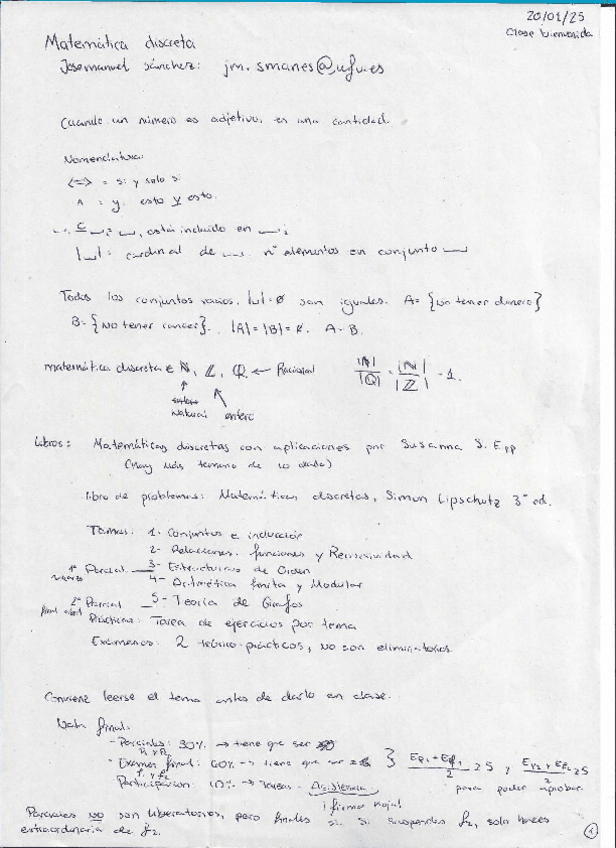 20/01/25
Clase bienvenida
Matemática discreta
Josemanuel Sánchez: jm.smanes@ufv.es
Cuando un número es adjetivo, es una cantidad.
Nomenclatura:
<=> = si y solo si
∧ = y. esto y esto.
⊆ está incluido en
|_| : cardinal de nº elementos en conjunto
Todos los conjuntos vacíos, = Ø son iguales. A = {No tener dinero}
B = {No tener cancer}. |A| = |B| = A = B.
matemática discreta ∈ ℕ, ℤ, ℚ ← Racional
|ℕ| / |ℚ| = |ℕ| / |ℤ| = 1.
Natural entero
Libros: Matemáticas discretas con aplicaciones por Susanna S. Epp
(Hay más temario de lo dado)
libro de problemas: Matemáticas discretas, Simon Lipschutz 3ª ed.
Temas: 1- Conjuntos e inducción
2- Relaciones, funciones y Recursividad
1º Parcial 3- Estructuras de Orden
marzo 4- Aritmética finita y Modular
2º Parcial 5- Teoría de Grafos
final abril Prácticas: Tarea de ejercicios por tema
Exámenes: 2 teórico-prácticos, no son eliminatorios.
Conviene leerse el tema antes de darlo en clase.
Nota final:
- Parciales: 30% → tiene que ser
P1 y P2
- Examen final: 60% → tiene que ser } Ep1 + Ef1 / 2 ≥ 5 y Ep2 + Ef2 / 2 ≥ 5
f1 y f2
- Participación: 10% → Tareas - Asistencia para poder aprobar.
¡ firmar hoja!
Parciales NO son liberatorios, pero finales si. Si suspendes f2, solo haces
extraordinaria de f2.
1